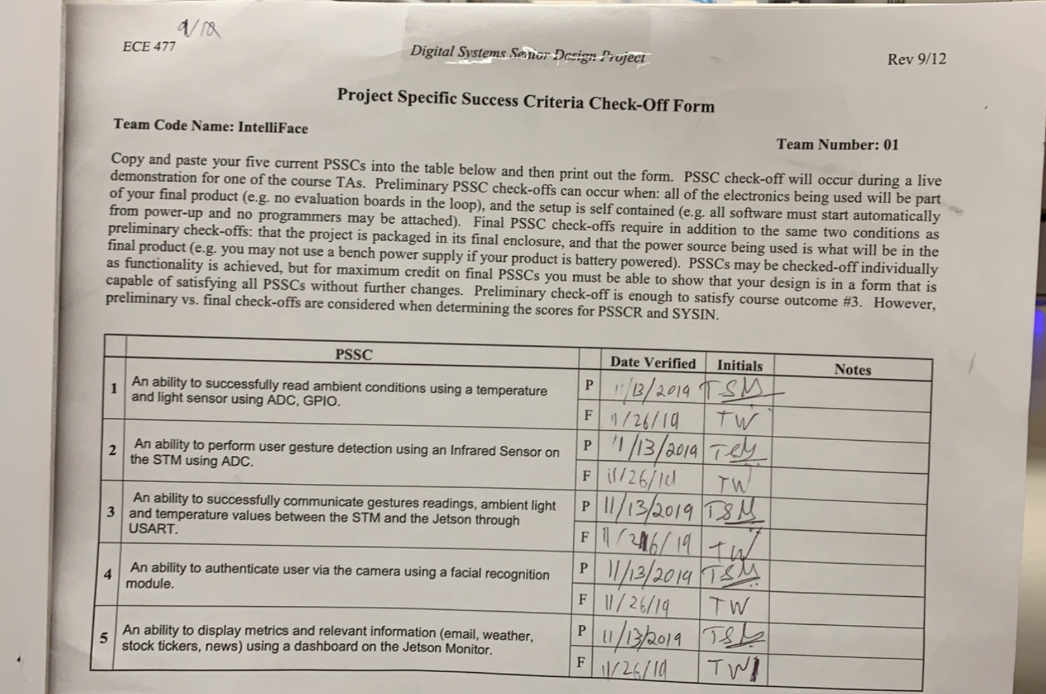 ECE 477
Digital Systems Senior Design Project
Rev 9/12
Project Specific Success Criteria Check-Off Form
Team Code Name: IntelliFace
Team Number: 01
Copy and paste your five current PSSCs into the table below and then print out the form. PSSC check-off will occur during a live
demonstration for one of the course TAs. Preliminary PSSC check-offs can occur when: all of the electronics being used will be part
of your final product (e.g. no evaluation boards in the loop), and the setup is self contained (e.g. all software must start automatically
from power-up and no programmers may be attached). Final PSSC check-offs require in addition to the same two conditions as
preliminary check-offs: that the project is packaged in its final enclosure, and that the power source being used is what will be in the
final product (e.g. you may not use a bench power supply if your product is battery powered). PSSCs may be checked-off individually
as functionality is achieved, but for maximum credit on final PSSCs you must be able to show that your design is in a form that is
capable of satisfying all PSSCs without further changes. Preliminary check-off is enough to satisfy course outcome #3. However,
preliminary vs. final check-offs are considered when determining the scores for PSSCR and SYSIN.
PSSC Date Verified Initials Notes
1 An ability to successfully read ambient conditions using a temperature
and light sensor using ADC, GPIO.
P 11/13/2019 TSM
F 11/26/19 TW
2 An ability to perform user gesture detection using an Infrared Sensor on
the STM using ADC.
P 11/13/2019 TSM
F 11/26/19 TW
3 An ability to successfully communicate gestures readings, ambient light
and temperature values between the STM and the Jetson through
USART.
P 11/13/2019 TSM
F 11/26/19 TW
4 An ability to authenticate user via the camera using a facial recognition
module.
P 11/13/2019 TSM
F 11/26/19 TW
5 An ability to display metrics and relevant information (email, weather,
stock tickers, news) using a dashboard on the Jetson Monitor.
P 11/13/2019 TSM
F 11/26/19 TW